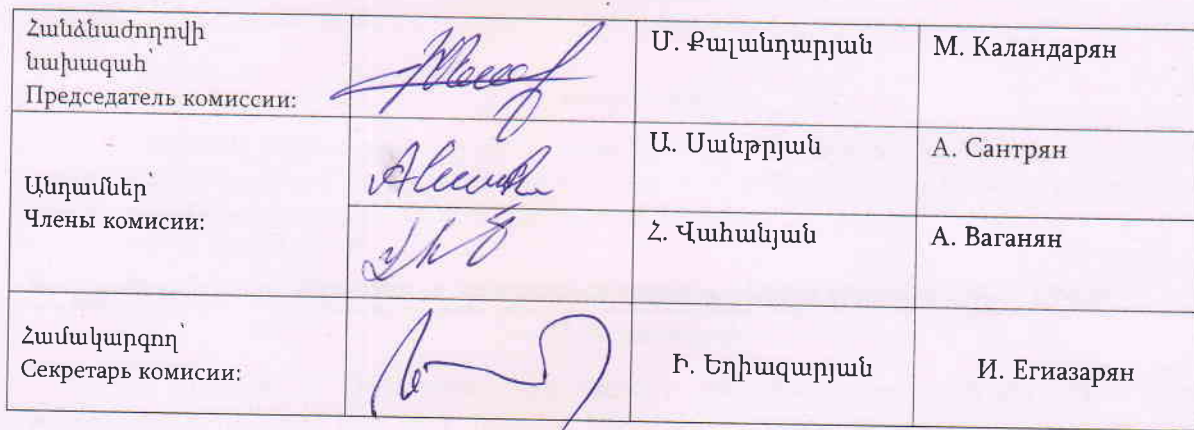 Հանձնաժողովի
նախագահ՝
Председатель комиссии:
Մ. Քալանդարյան
М. Каландарян
Անդամներ՝
Члены комисии:
Ա. Սանթրյան
А. Сантрян
Հ. Վահանյան
А. Ваганян
Համակարգող՝
Секретарь комисии:
Ի. Եղիազարյան
И. Егиазарян